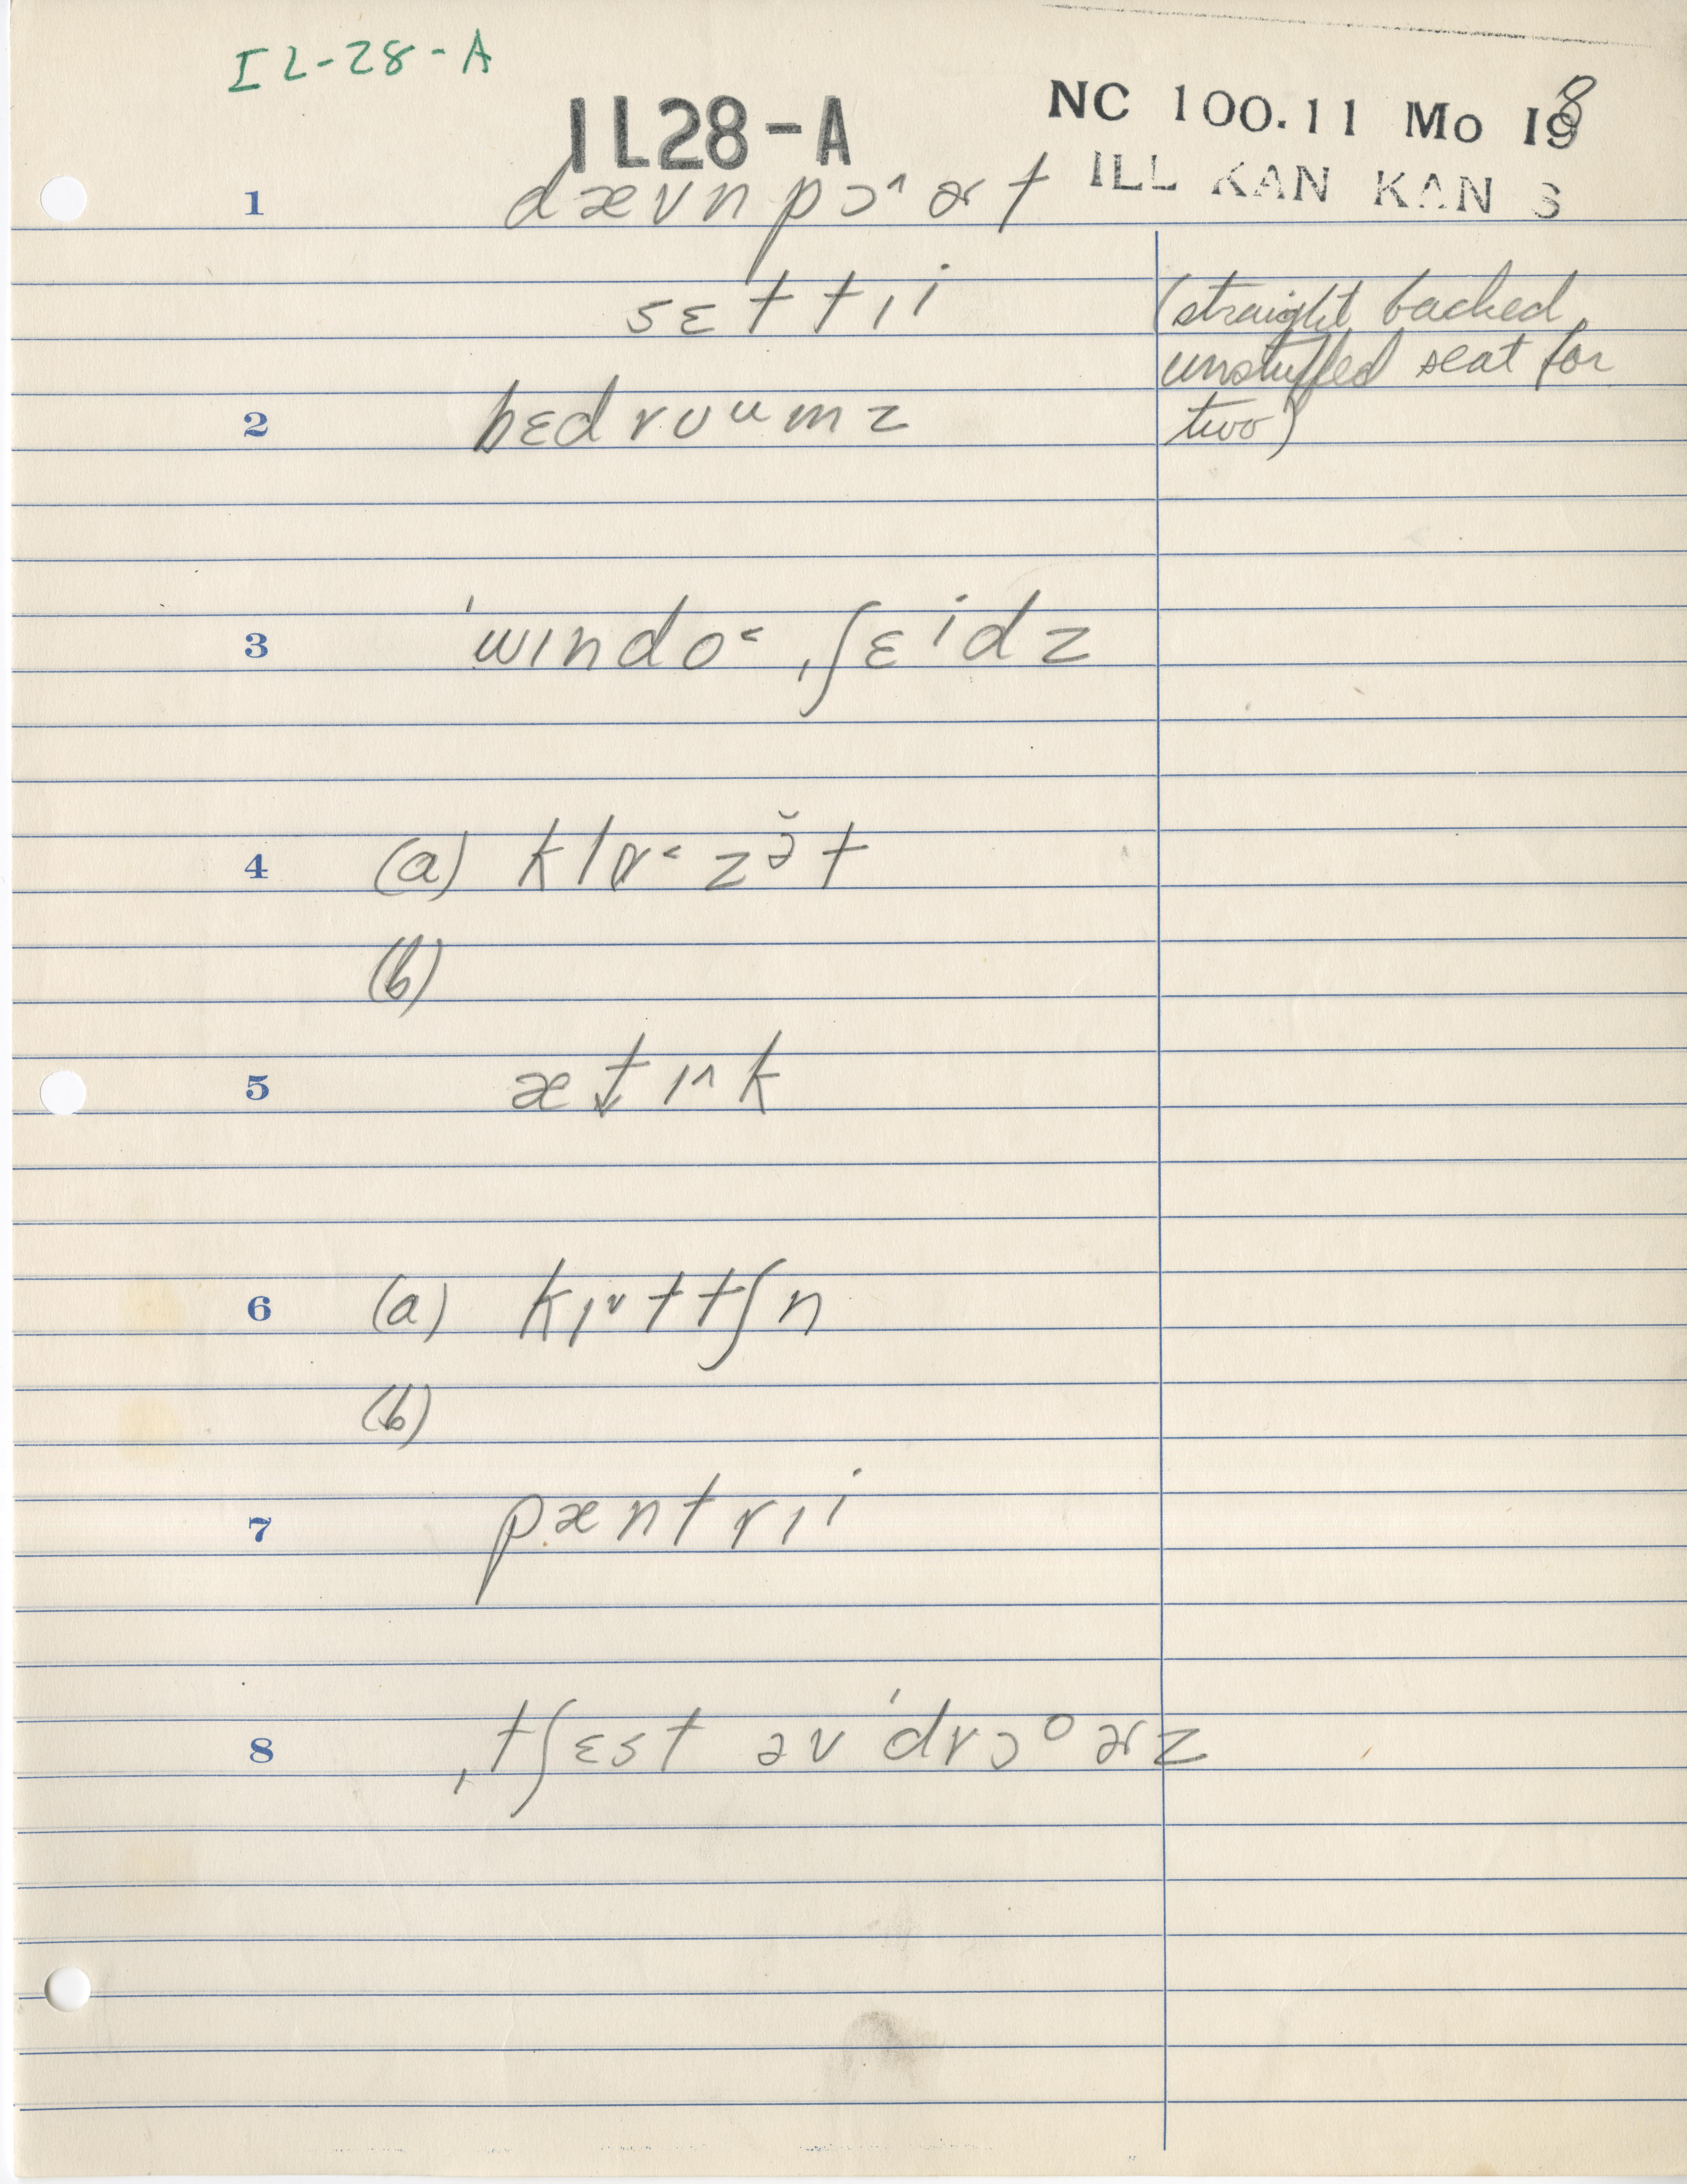 IL-28-A
IL28-A
NC 100.11 Mo I8
ILL KAN KAN S
1 dævnpɔ˄ɚt
sɛttɪi (straight backed
unstuffed seat for
2 bɛdrʊumz two)
3 ˈwɪndo˂ˌʃɛidz
4 (a) klɒ˂zə̆t
(b)
5 æt̬ɪ˄k
6 (a) kɪ˅ttʃn
(b)
7 pæntrɪi
8 ˌtʃɛst əvˈdrɔoɚz